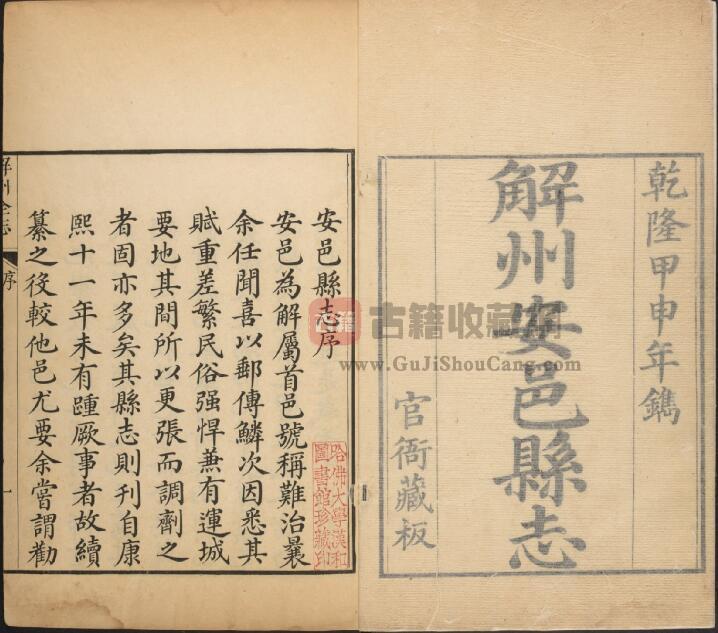 乾隆甲申年鐫
解州安邑縣志
官衙藏板
安邑縣志序
安邑為解屬首邑號稱難治曩
余任聞喜以郵傳鱗次因悉其
賦重差繁民俗强悍蒹有運城
要地其間所以更張而調劑之
者固亦多矣其縣志則刊自康
熙十一年未有踵厥事者故續
纂之役較他邑尤要余嘗謂勸
解州全志
序
一
哈佛大學漢和
圖書館珍藏印
古籍
古籍收藏網
www.GuJiShouCang.com